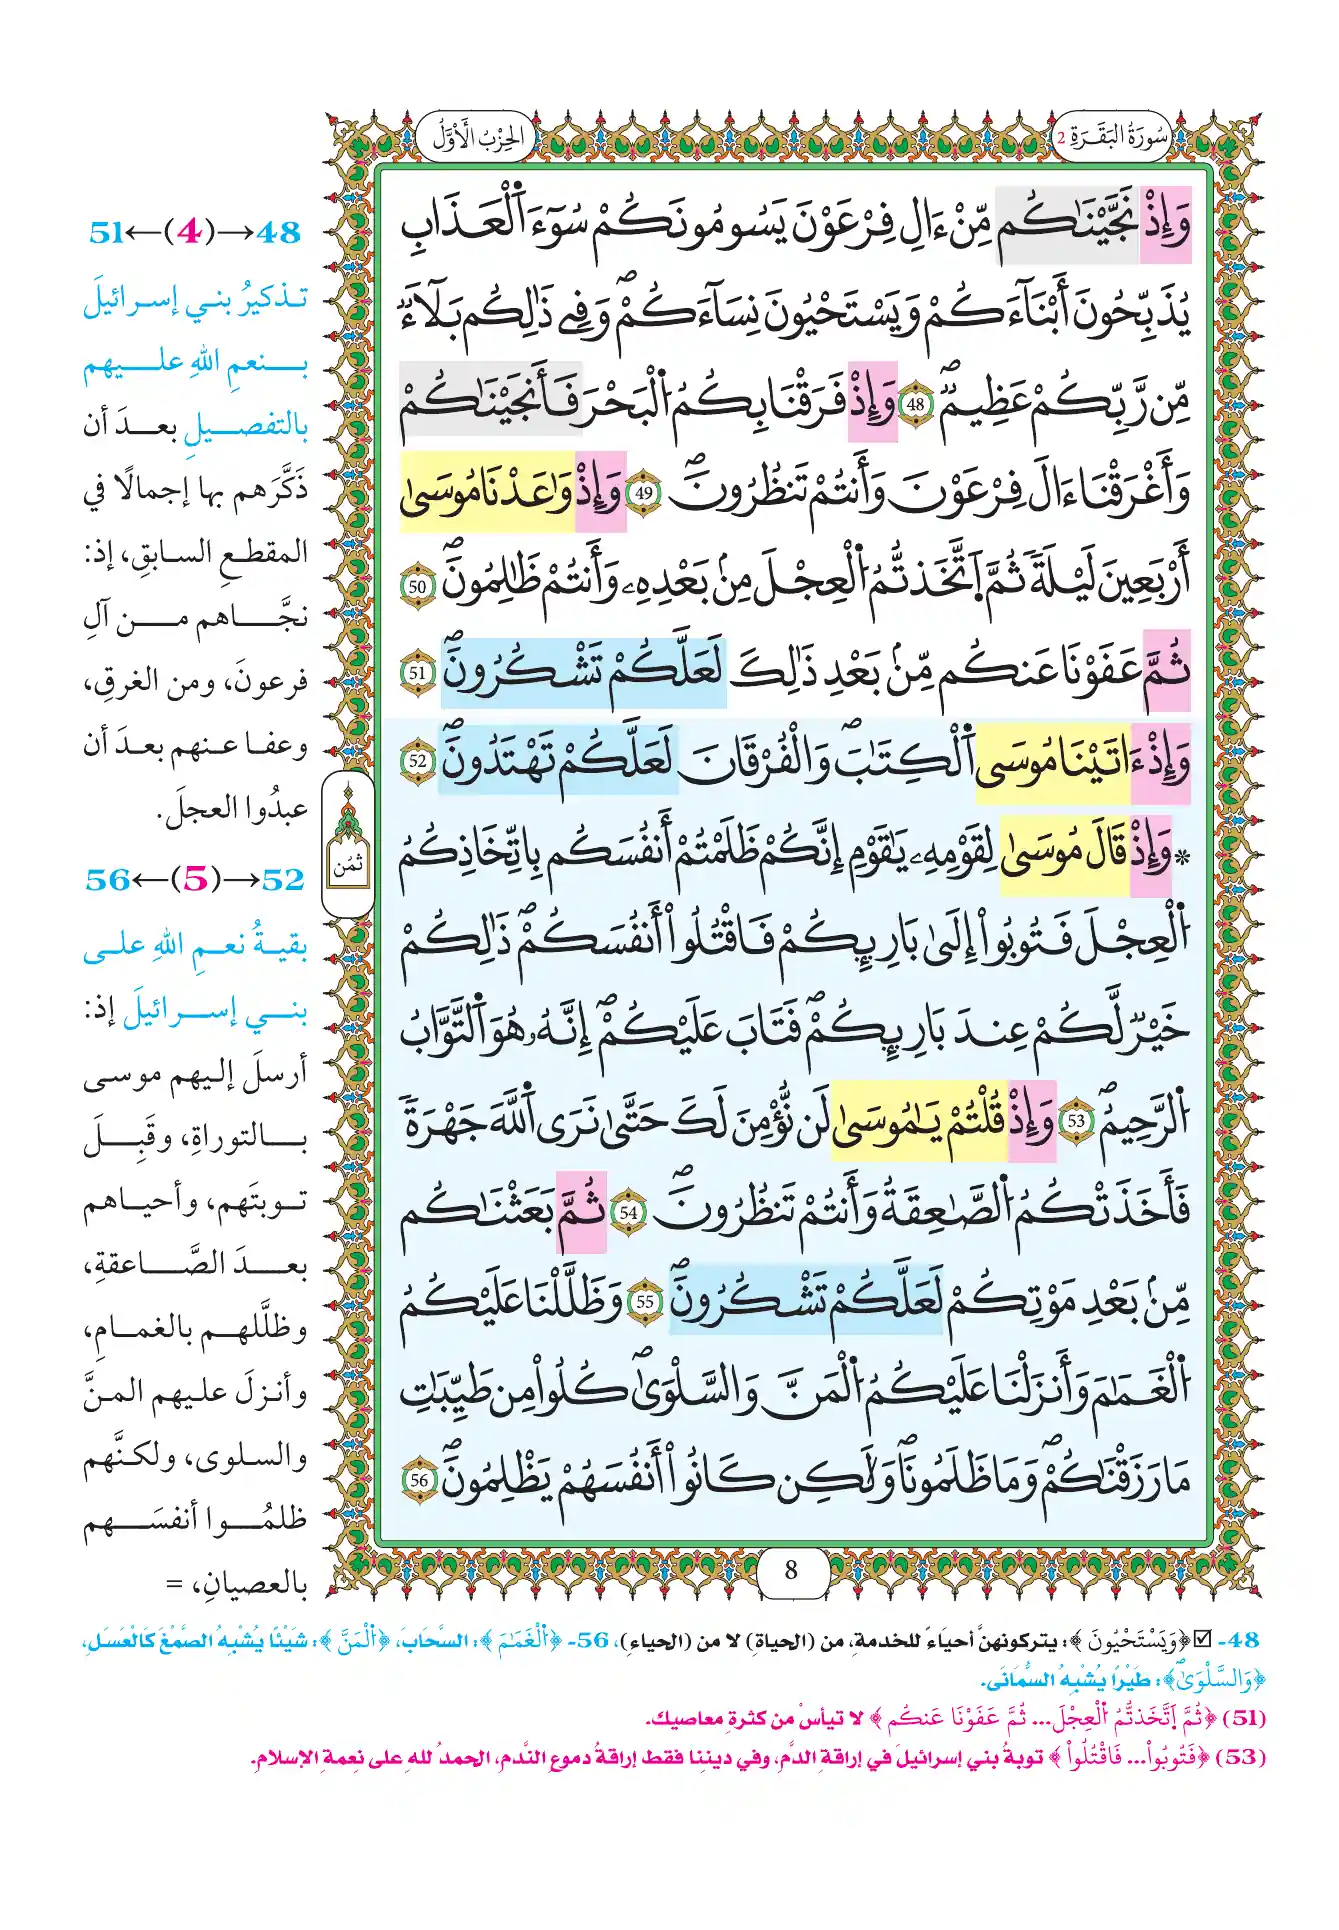 سُورَةُ البَقَرَةِ 2
الحِزْبُ الأَوَّلُ
وَإِذْ نَجَّيْنَاكُم مِّنْ ءَالِ فِرْعَوْنَ يَسُومُونَكُمْ سُوٓءَ اَ۬لْعَذَابِ
يُذَبِّحُونَ أَبْنَآءَكُمْ وَيَسْتَحْيُونَ نِسَآءَكُمْۖ وَفِے ذَٰلِكُم بَلَآءٞ
مِّن رَّبِّكُمْ عَظِيمٞۖ 48 وَإِذْ فَرَقْنَا بِكُمُ اُ۬لْبَحْرَ فَأَنجَيْنَاكُمْ
وَأَغْرَقْنَا ءَالَ فِرْعَوْنَ وَأَنتُمْ تَنظُرُونَۖ 49 وَإِذْ وَٰعَدْنَا مُوسَىٰ
أَرْبَعِينَ لَيْلَةٗ ثُمَّ اَ۪تَّخَذتُّمُ اُ۬لْعِجْلَ مِنۢ بَعْدِهِۦ وَأَنتُمْ ظَٰلِمُونَۖ 50
ثُمَّ عَفَوْنَا عَنكُم مِّنۢ بَعْدِ ذَٰلِكَ لَعَلَّكُمْ تَشْكُرُونَۖ 51
وَإِذْ ءَاتَيْنَا مُوسَى اَ۬لْكِتَٰبَۖ وَالْفُرْقَانَ لَعَلَّكُمْ تَهْتَدُونَۖ 52
* وَإِذْ قَالَ مُوسَىٰ لِقَوْمِهِۦ يَٰقَوْمِ إِنَّكُمْ ظَلَمْتُمْ أَنفُسَكُم بِاتِّخَاذِكُمُ
اُ۬لْعِجْلَ فَتُوبُوا۟ إِلَىٰ بَارِئِكُمْ فَاقْتُلُوٓا۟ أَنفُسَكُمْۖ ذَٰلِكُمْ
خَيْرٞ لَّكُمْ عِندَ بَارِئِكُمْۖ فَتَابَ عَلَيْكُمْۖ إِنَّهُۥ هُوَ اَ۬لتَّوَّابُ
اُ۬لرَّحِيمُۖ 53 وَإِذْ قُلْتُمْ يَٰمُوسَىٰ لَن نُّؤْمِنَ لَكَ حَتَّىٰ نَرَى اَ۬للَّهَ جَهْرَةٗ
فَأَخَذَتْكُمُ اُ۬لصَّٰعِقَةُ وَأَنتُمْ تَنظُرُونَۖ 54 ثُمَّ بَعَثْنَٰكُم
مِّنۢ بَعْدِ مَوْتِكُمْ لَعَلَّكُمْ تَشْكُرُونَۖ 55 وَظَلَّلْنَا عَلَيْكُمُ
اُ۬لْغَمَٰمَ وَأَنزَلْنَا عَلَيْكُمُ اُ۬لْمَنَّ وَالسَّلْوَىٰۖ كُلُوا۟ مِن طَيِّبَٰتِ
مَا رَزَقْنَٰكُمْۖ وَمَا ظَلَمُونَاۖ وَلَٰكِن كَانُوٓا۟ أَنفُسَهُمْ يَظْلِمُونَۖ 56
8
ثمُن
48→(4)←51
تذكيرُ بني إسرائيلَ
بنعمِ اللهِ عليهم
بالتفصيلِ بعدَ أن
ذَكَّرَهم بها إجمالًا في
المقطعِ السابقِ، إذ:
نجَّاهم من آلِ
فرعونَ، ومن الغرقِ،
وعفا عنهم بعدَ أن
عبدُوا العجلَ.
52→(5)←56
بقيةُ نعمِ اللهِ على
بني إسرائيلَ إذ:
أرسلَ إليهم موسى
بالتوراةِ، وقَبِلَ
توبتَهم، وأحياهم
بعدَ الصَّاعقةِ،
وظلَّلهم بالغمامِ،
وأنزلَ عليهم المنَّ
والسلوى، ولكنَّهم
ظلمُوا أنفسَهم
بالعصيانِ، =
48- ☑ ﴿وَيَسْتَحْيُونَ﴾: يتركونهنَّ أحياءً للخدمة، من (الحياة) لا من (الحياء)، 56- ﴿اُ۬لْغَمَٰمَ﴾: السَّحابَ، ﴿اُ۬لْمَنَّ﴾: شَيْئًا يُشْبِهُ الصَّمْغَ كَالْعَسَلِ،
﴿وَالسَّلْوَىٰۖ﴾: طَيْرًا يُشْبِهُ السُّمَانَى.
(51) ﴿ثُمَّ اَ۪تَّخَذتُّمُ اُ۬لْعِجْلَ... ثُمَّ عَفَوْنَا عَنكُم﴾ لا تيأسْ من كثرةِ معاصيك.
(53) ﴿فَتُوبُوا۟... فَاقْتُلُوٓا۟﴾ توبةُ بني إسرائيلَ في إراقةِ الدَّمِ، وفي ديننِا فقط إراقةُ دموعِ النَّدم، الحمدُ للهِ على نعمةِ الإسلام.